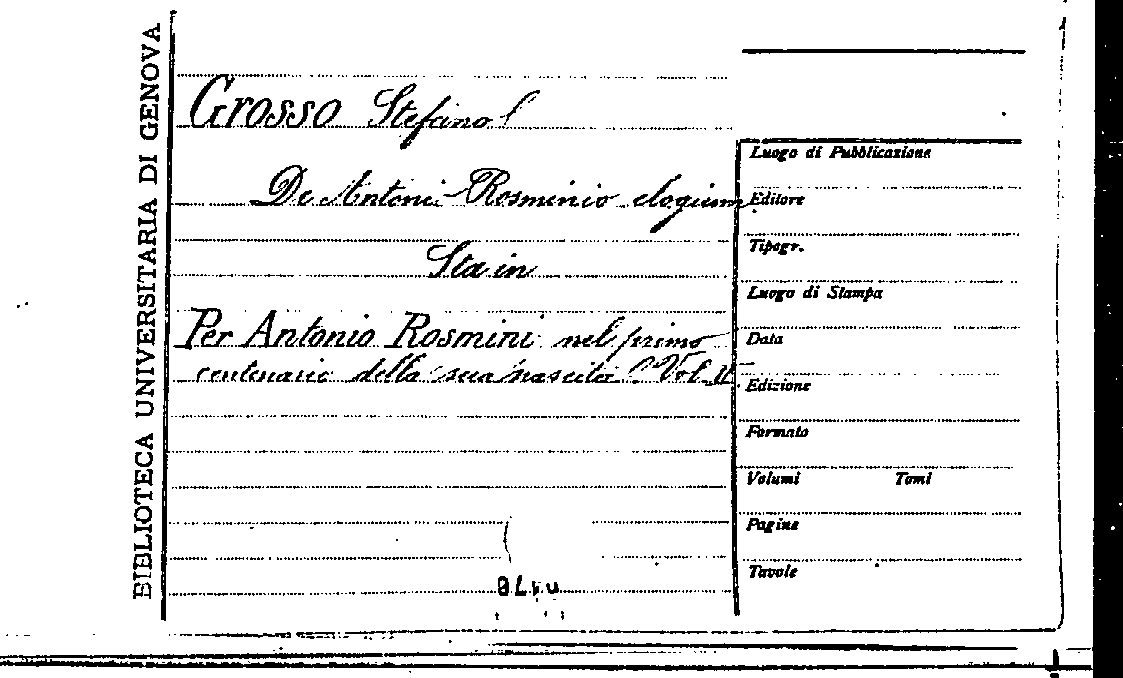 BIBLIOTECA UNIVERSITARIA DI GENOVA
Grosso Stefano
De Antoni Rosminio elogium
Sta in
Per Antonio Rosmini nel primo
centenario della sua nascita Vol. II
Luogo di Pubblicazione
Editore
Tipogr.
Luogo di Stampa
Data
Edizione
Formato
Volumi Tomi
Pagine
Tavole